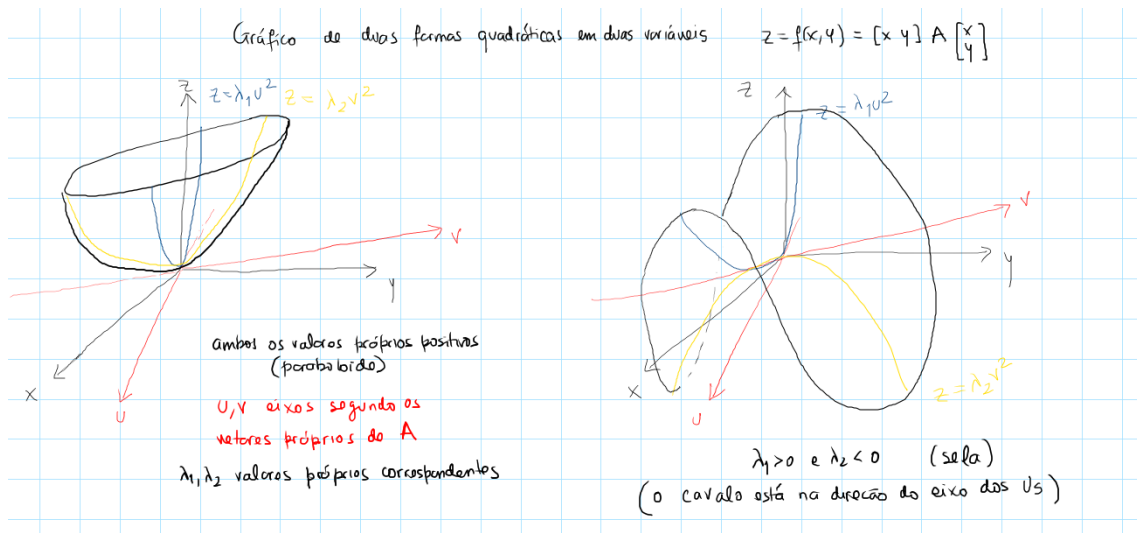 Gráfico de duas formas quadráticas em duas variáveis z = f(x,y) = [x y] A [x y]
z
z=λ₁u²
z = λ₂v²
v
y
x
u
ambos os valores próprios positivos
(paraboloide)
u,v eixos segundo os
vetores próprios de A
λ₁,λ₂ valores próprios correspondentes
z
z = λ₁u²
v
y
x
u
z = λ₂v²
λ₁>0 e λ₂<0 (sela)
(o cavalo está na direção do eixo dos Us)